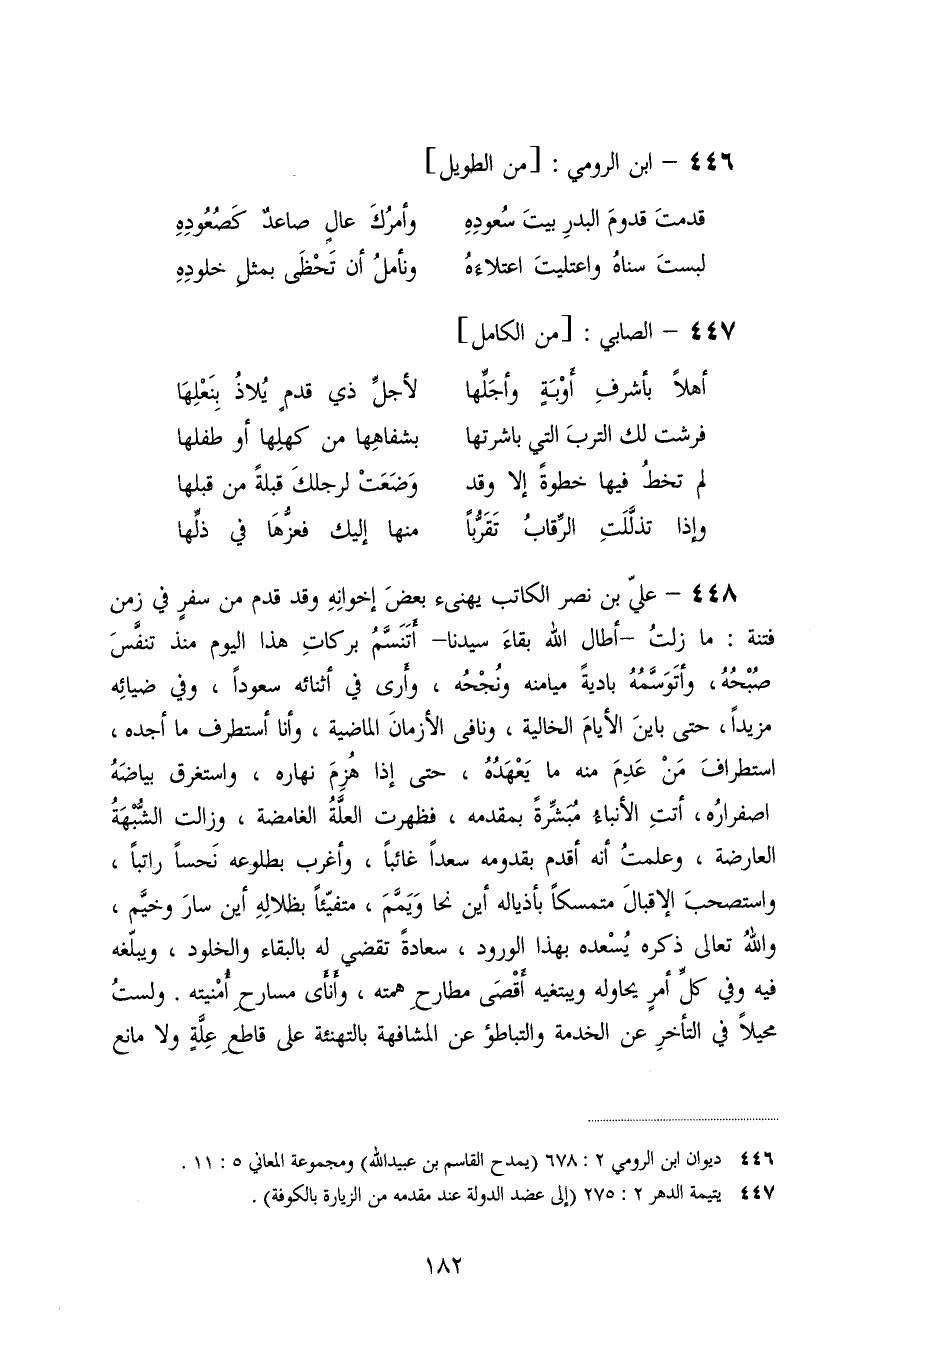 ٤٤٦ – ابن الرومي : [من الطويل]
قدمتَ قدومَ البدرِ بيتَ سُعودِهِ وأمرُكَ عالٍ صاعدٌ كَصُعُودِهِ
لبستَ سناهُ واعتليتَ اعتلاءَهُ ونأملُ أن تَحْظَى بمثلِ خلودِهِ
٤٤٧ – الصابي : [من الكامل]
أهلاً بأشرفِ أَوْبَةٍ وأجَلِّها لأجلِّ ذي قدمٍ يُلاذُ بِنَعْلِهَا
فرشت لك التربَ التي باشرتها بشفاهِها من كهلِها أو طفلها
لم تخطُ فيها خطوةً إلا وقد وَضَعَتْ لرجلكَ قبلةً من قبلها
وإذا تذلَّلَتِ الرِّقابُ تَقَرُّباً منها إليك فعزُّهَا في ذلِّها
٤٤٨ – عليّ بن نصر الكاتب يهنىء بعضَ إخوانِهِ وقد قدم من سفرٍ في زمن
فتنة : ما زلتُ –أطال الله بقاءَ سيدنا– أَتَنَسَّمُ بركاتِ هذا اليوم منذ تنفَّسَ
صُبْحُهُ، وأتَوَسَّمُهُ باديةً ميامنه ونُجْحُه ، وأَرى في أثنائه سعوداً ، وفي ضيائِه
مزيداً، حتى باينَ الأيامَ الخالية ، ونافى الأزمانَ الماضية ، وأنا أستطرف ما أجده ،
استطرافَ مَنْ عَدِمَ منه ما يَعْهَدُهُ ، حتى إذا هُزِمَ نهاره ، واستغرق بياضَهُ
اصفرارُه، أتتِ الأنباءُ مُبَشِّرةً بمقدمه ، فظهرت العلَّةُ الغامضة ، وزالت الشُّبْهَةُ
العارضة ، وعلمتُ أنه أقدم بقدومه سعداً غائباً ، وأغرب بطلوعه نَحساً راتباً ،
واستصحبَ الإقبالَ متمسكاً بأذياله أين نحا وَيَمَّمَ ، متفيّئاً بظلالِهِ أين سارَ وخيَّم ،
واللهُ تعالى ذكره يُسْعده بهذا الورود ، سعادةً تقضي له بالبقاء والخلود ، ويبلّغه
فيه وفي كلِّ أمرٍ يحاوله ويبتغيه أَقْصَى مطارحِ همته ، وأَنأَى مسارحِ أُمْنيته . ولستُ
محيلاً في التأخرِ عن الخدمة والتباطؤ عن المشافهة بالتهنئة على قاطعِ عِلَّةٍ ولا مانع
٤٤٦ ديوان ابن الرومي ٢ : ٦٧٨ (يمدح القاسم بن عبيدالله) ومجموعة المعاني ٥ : ١١ .
٤٤٧ يتيمة الدهر ٢ : ٢٧٥ (إلى عضد الدولة عند مقدمه من الزيارة بالكوفة) .
١٨٢